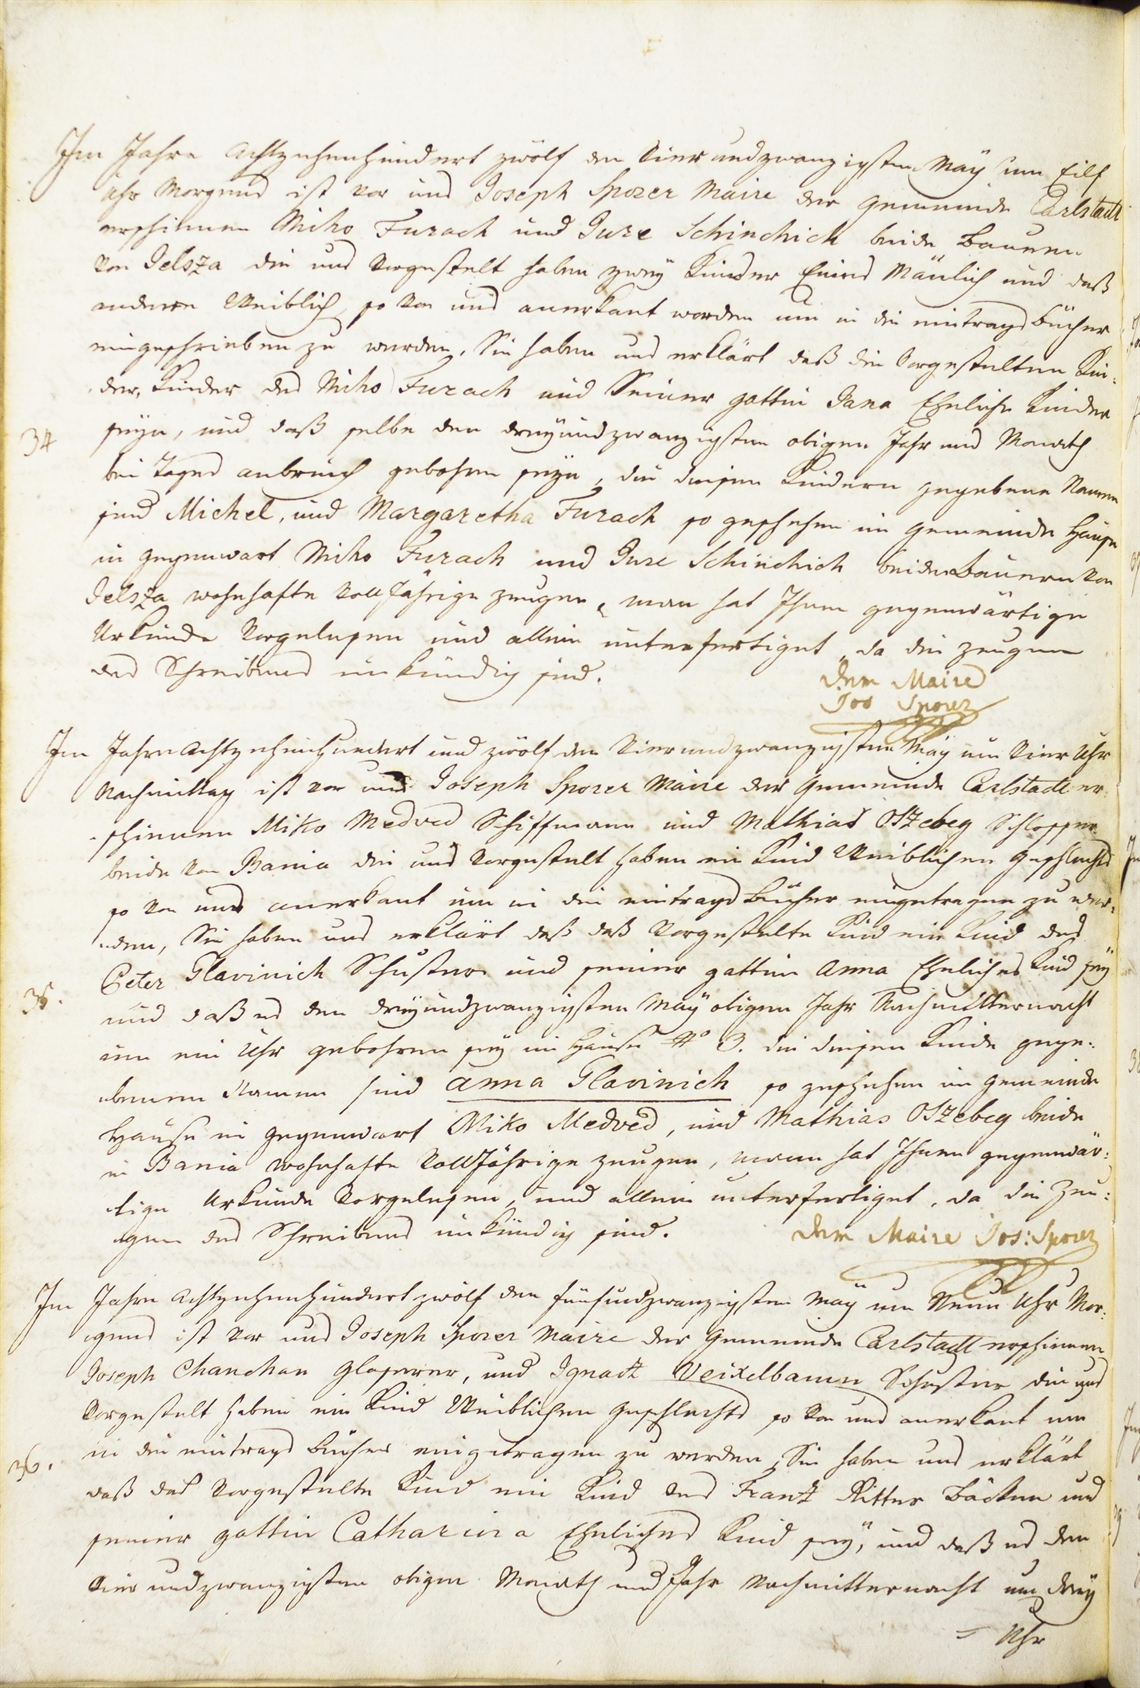 Im Jahre Achtzehenhundert zwölf den vierundzwanzigsten Maÿ um Eilf
Uhr Morgens ist vor uns Joseph Sporer Maire der Gemeinde Carlstadt
erschienen Miko Furach und Jure Schinchich beide Bauern
von Jelsza die uns vorgestelt haben zweÿ Kinder Eines Mänlich und daß
andere Weiblich, so von uns anerkant worden um in die eintrags Bücher
eingeschrieben zu werden. Sie haben uns erklärt daß die vorgestelten Kin-
der, Kinder des Miko Furach und Seiner gattin Jana Eheliche Kinder
34
seÿn, und daß selbe den dreÿundzwanzigsten obigen Jahr und Monath
bei Tages anbruch gebohren seÿn, die diesen Kindern gegebene Namen
sind Michel, und Margaretha Furach so geschehen im Gemeinde Hause
in gegenwart Miko Furach und Jure Schinchich beide Bauern von
Jelsza wohnhafte volljährige zeugen, man hat Ihnen gegenwärtige
Urkunde vorgelesen und allein unterfertiget, da die zeugen
des Schreibens unkündig sind.
Der Maire
Jos Sporer
Im Jahre Achtzehenhundert und zwölf den vierundzwanzigsten Maÿ um vier Uhr
Nachmittag ist vor uns Joseph Sporer Maire der Gemeinde Carlstadt er-
schienen Miko Medved Schiffmann und Mathias Oszebeg Schlosser
beide von Bania die uns vorgestelt haben ein Kind Weiblichen geschlechts
so von uns anerkant um in die eintrags Bücher eingetragen zu wer-
den, Sie haben uns erklärt daß daß vorgestelte Kind ein Kind des
Peter Glavinich Schuster und seiner gattin Anna Eheliches Kind seÿ
35.
und daß es den dreÿundzwanzigsten Maÿ obigen Jahr Nachmitternacht
um ein Uhr gebohren seÿ im Hause No 3. die diesen Kinde gege-
benen Namen sind Anna Glavinich so geschehen im Gemeinde
Hause in gegenwart Miko Medved, und Mathias Oszebeg beide
in Bania wohnhafte volljährige zeugen, mann hat Ihnen gegenwär-
tige Urkunde vorgelesen, und allein unterfertiget, da die Zeu-
gen des Schreibens unkündig sind.
Der Maire Jos: Sporer
Im Jahre Achtzehenhundert zwölf den fünfundzwanzigsten Maÿ um Neun Uhr Mor-
gens ist vor uns Joseph Sporer Maire der Gemeinde Carlstadt erschienen
Joseph Chanchan Glaserer, und Ignatz Veixelbaum Schuster die uns
vorgestelt haben ein Kind Weiblichen geschlechts so von uns anerkant um
36.
in die eintrags Bücher eingetragen zu werden, Sie haben uns erklärt
daß das vorgestelte Kind ein Kind des Frantz Ritter Bäcken und
seiner gattin Catharina Eheliches Kind seÿ, und daß es den
vierundzwanzigsten obigen Monath und Jahr Nachmitternacht um dreÿ
= Uhr